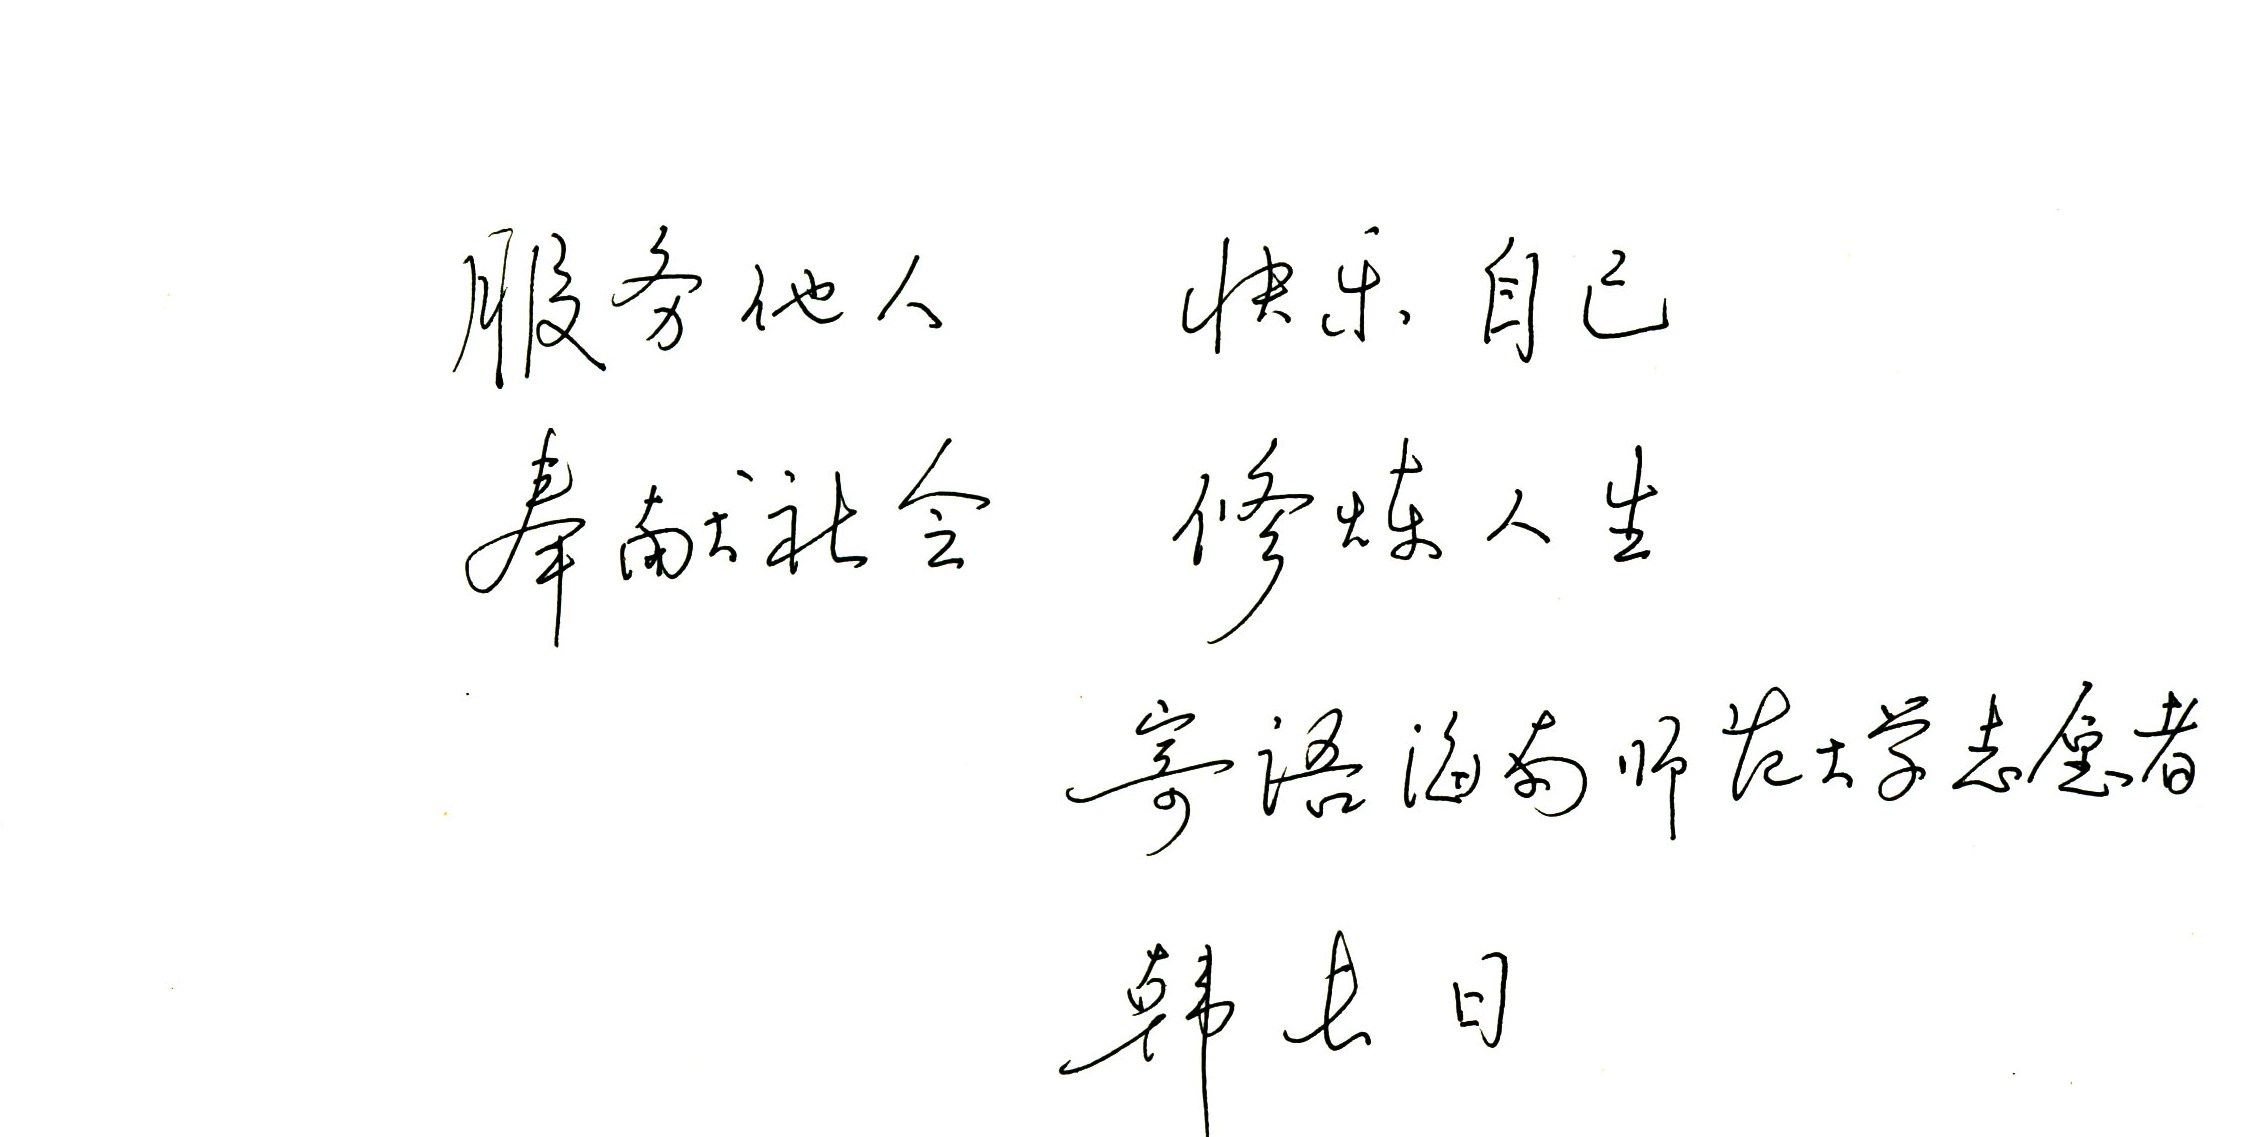 服务他人 快乐自己
奉献社会 修炼人生
寄语海南师范大学志愿者
韩长日